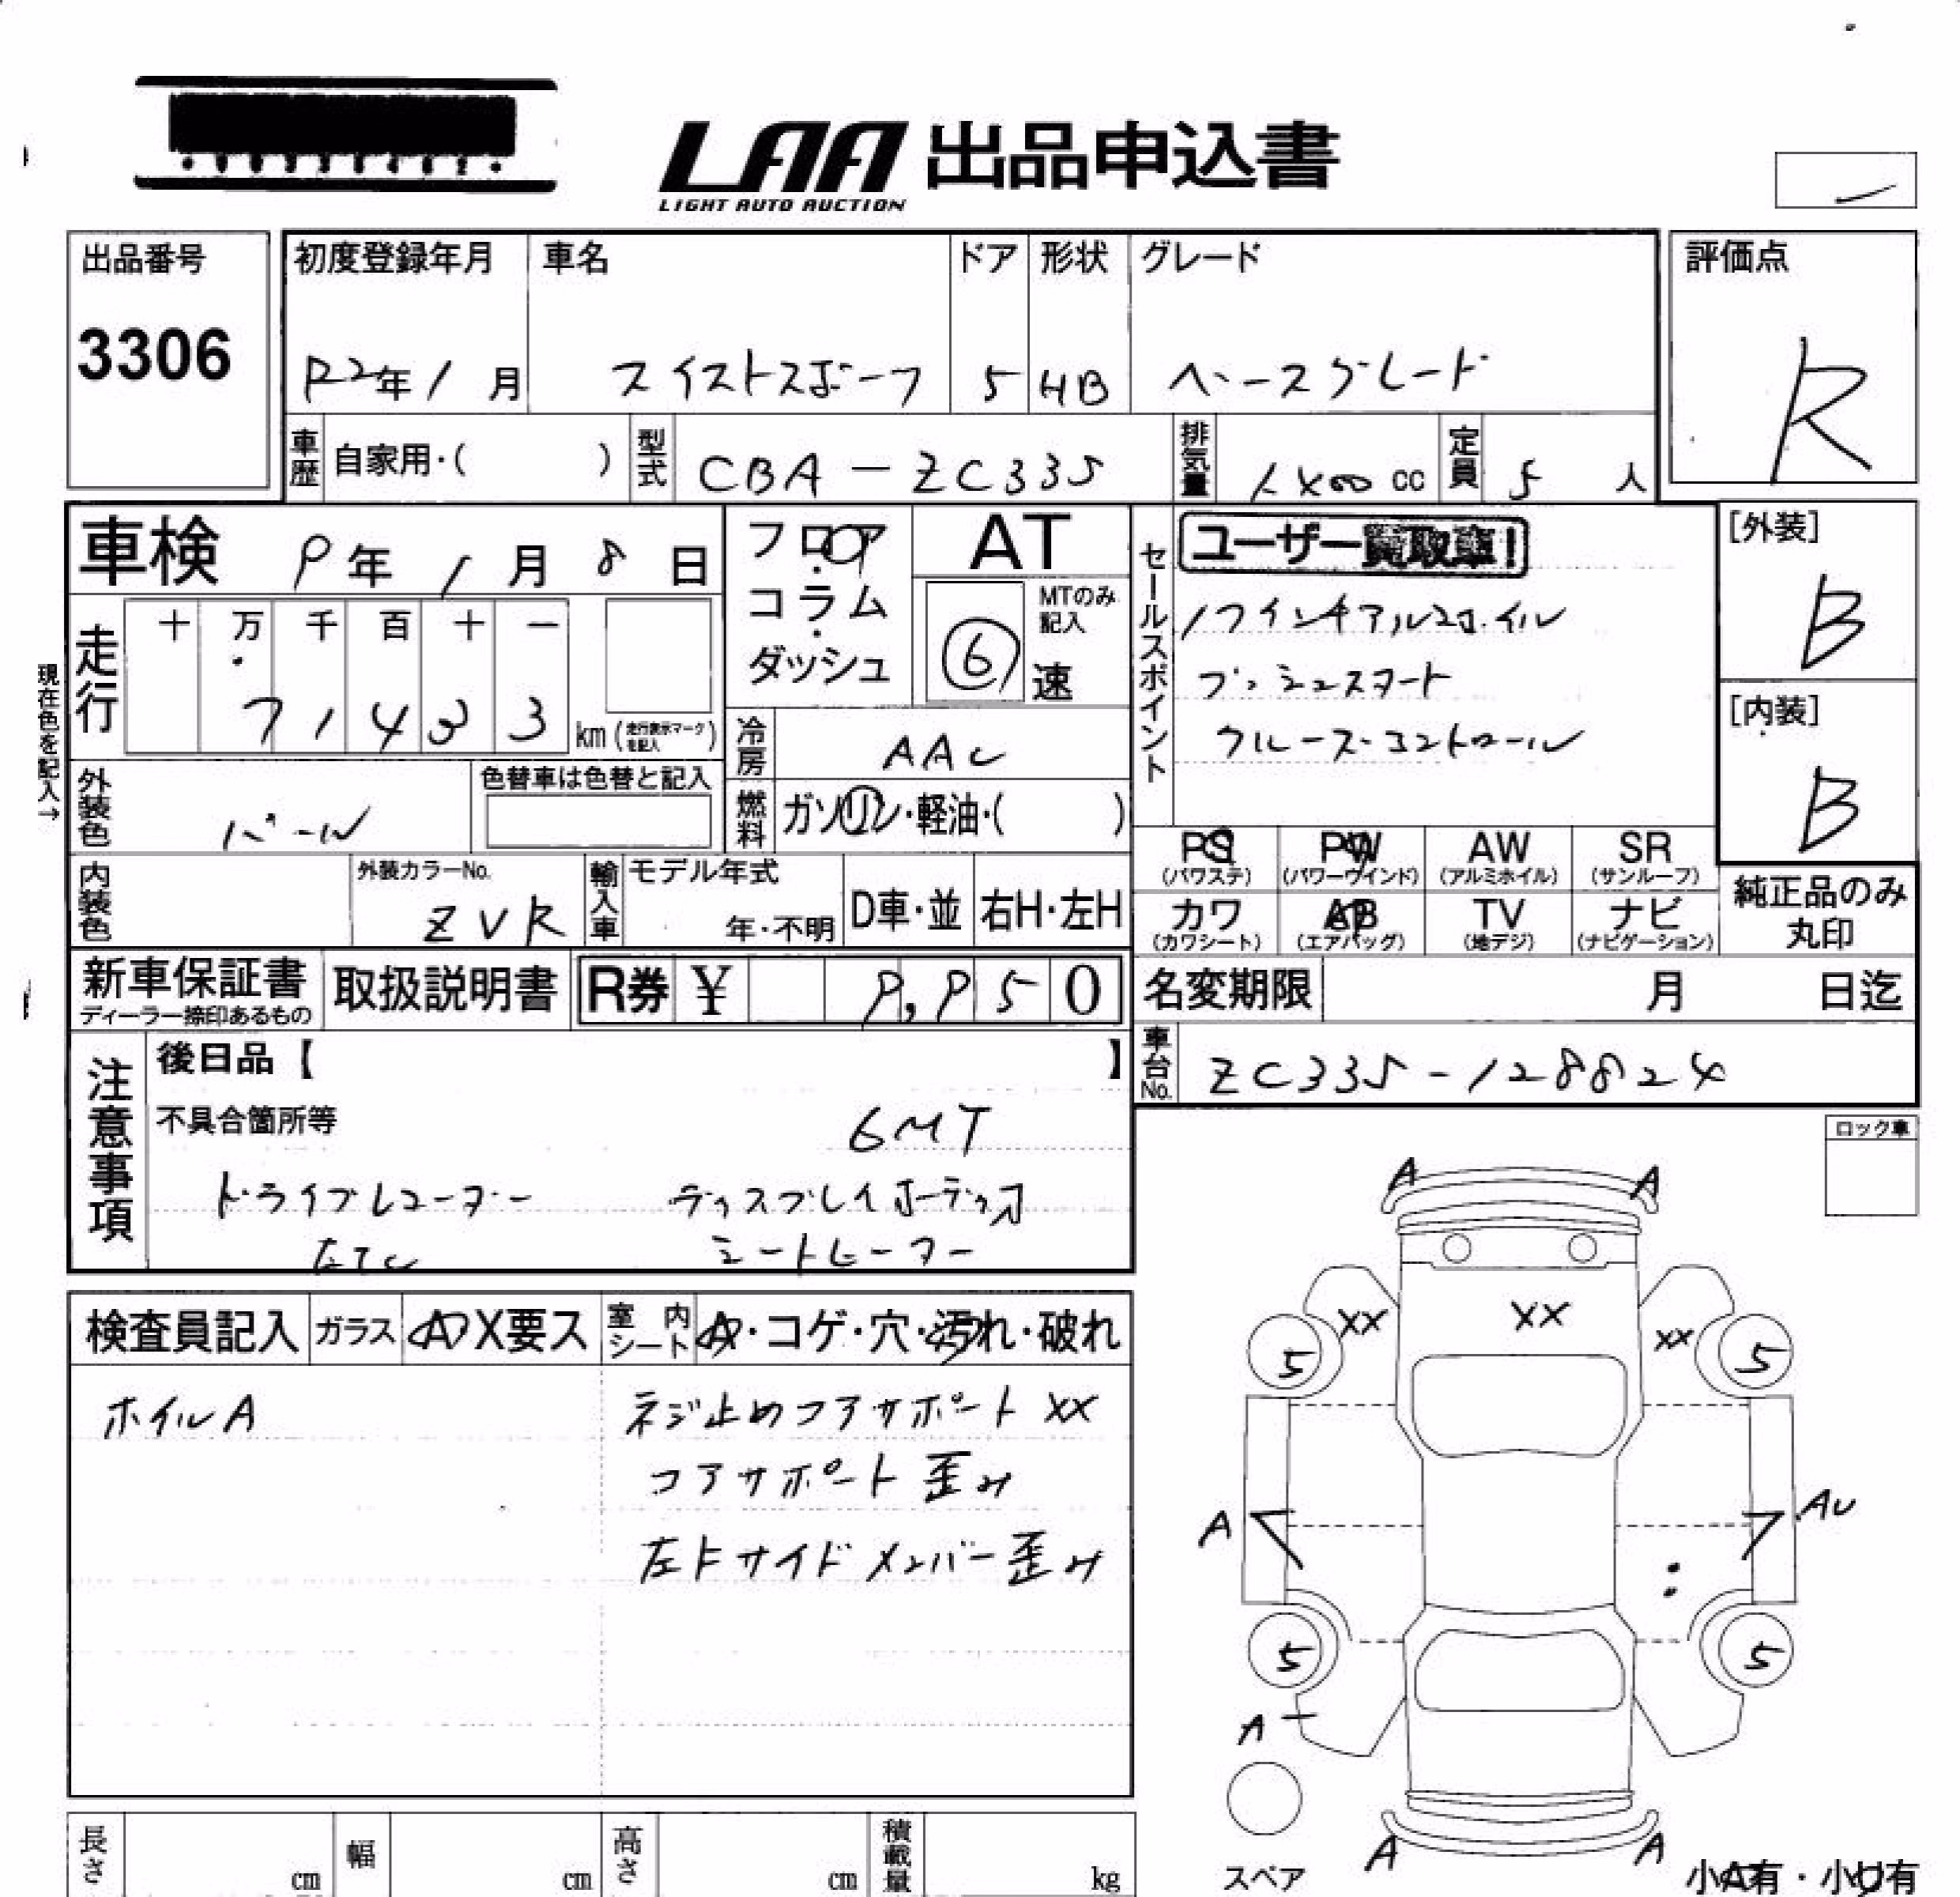 LAA 出品申込書
LIGHT AUTO AUCTION
出品番号
3306
初度登録年月
R2年1月
車名
スイフトスポーツ
ドア
5
形状
HB
グレード
ベースグレード
評価点
R
車歴
自家用・( )
型式
CBA-ZC33S
排気量
1400 cc
定員
5 人
車検 9年1月8日
フロア・コラム・ダッシュ
AT
MTのみ記入
⑥ 速
セールスポイント
ユーザー買取車!
17インチアルミホイル
プッシュスタート
クルーズコントロール
[外装]
B
[内装]
B
現在色を記入→
走行
十 万 千 百 十 一
7 1 4 3 3
km (走行表示マークを記入)
冷房
AAC
燃料
ガソリン・軽油・( )
外装色
パール
色替車は色替と記入
内装色
外装カラーNo.
ZVR
輸入車
モデル年式
年・不明
D車・並
右H・左H
PS
(パワステ)
PW
(パワーウインド)
AW
(アルミホイル)
SR
(サンルーフ)
カワ
(カワシート)
AB
(エアバッグ)
TV
(地デジ)
ナビ
(ナビゲーション)
純正品のみ
丸印
新車保証書
ディーラー捺印あるもの
取扱説明書
R券 ¥ 9,950
名変期限 月 日迄
車台No.
ZC33S-128824
注意事項
後日品【 】
不具合箇所等
6MT
ドライブレコーダー ディスプレイオーディオ
ETC シートヒーター
ロック車
検査員記入
ガラス
A X要ス
室内シート
A・コゲ・穴・汚れ・破れ
ホイルA
ネジ止めコアサポート XX
コアサポート 歪み
左Fサイドメンバー歪み
A A
XX XX XX
5 5
A AU
5 5
A
A A
スペア
小A有・小U有
長さ cm
幅 cm
高さ cm
積載量 kg